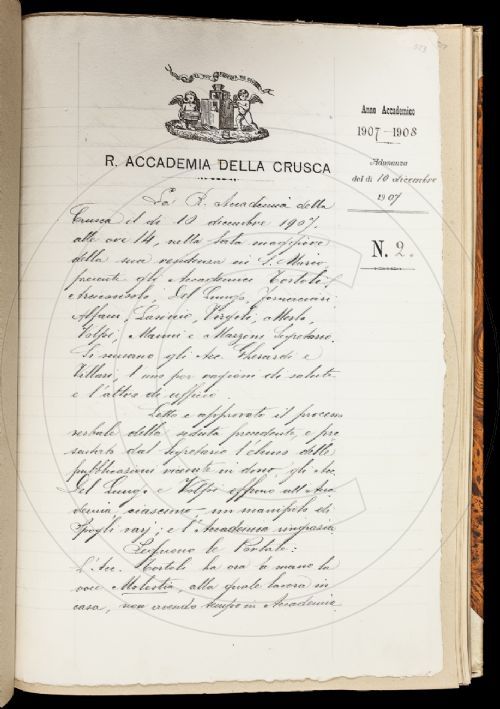 R. ACCADEMIA DELLA CRUSCA
Anno Accademico
1907-1908
Adunanza
del dì 10 dicembre
1907
N. 2.
La R. Accademia della
Crusca il dì 10 dicembre 1907,
alle ore 14, nella sala maggiore
della sua residenza in S. Marco,
presenti gli Accademici Tortoli,
Arciconsolo, Del Lungo, Fornaciari,
Alfani, Vergoli, Mosto,
Volpi, Mazzoni Segretario.
Si scusano gli Acc. Gherardi e
Villari, l'uno per ragioni di salute
e l'altro di ufficio.
Letto e approvato il processo
verbale della seduta precedente, e pre
sentato dal Segretario l'elenco delle
pubblicazioni ricevute in dono, gli Acc.
Del Lungo e Volpi offrono all'Acca
demia, ciascuno, un manipolo di
spogli varj; e l'Accademia ringrazia.
Seguono le Portate:
L'Acc. Tortoli ha ora a mano la
voce Molestia, alla quale lavora in
casa, non avendo tempo in Accademia.